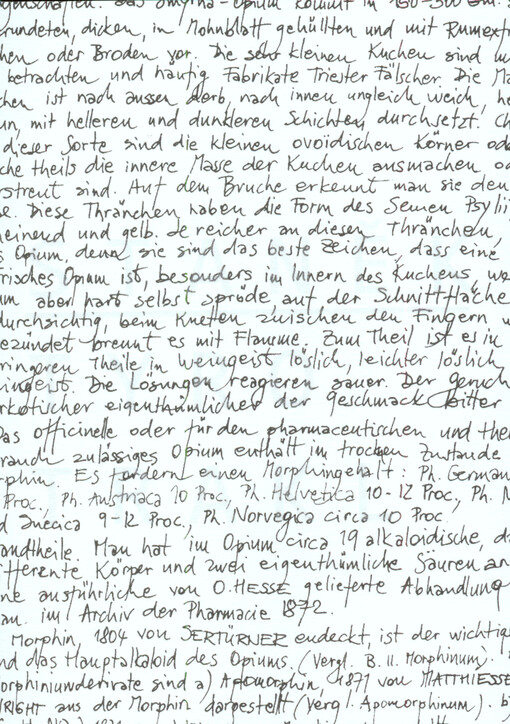 genschaften. Das Smyrna-Opium kommt in 150-300
rundeten, dicken, in Mohnblatt gehüllten und mit Rumex
hen oder Broden vor. Die sehr kleinen Kuchen sind
betrachten und häufig Fabrikate Triester Fälscher. Die Ma
chen ist nach aussen derb, nach innen ungleich weich, he
un, mit helleren und dunkleren Schichten durchsetzt. Ch
dieser Sorte sind die kleinen ovoidischen Körner od
che theils die innere Masse der Kuchen ausmachen od
rstreut sind. Auf dem Bruche erkennt man sie den
e. Diese Thränchen haben die Form des Semen Psylli
heinend und gelb. Je reicher an diesen Thränchen,
s Opium, denn sie sind das beste Zeichen, dass eine
frisches Opium ist, besonders im Innern des Kuchens, we
um aber hart selbst spröde, auf der Schnittfläche
durchsichtig, beim Kneten zwischen den Fingern w
gezündet brennt es mit Flamme. Zum Theil ist es in
ringeren Theile in Weingeist löslich, leichter löslich
ingeist. Die Lösungen reagieren sauer. Der Geruch
rkotischer eigenthümlicher der Geschmack bitter
Das officinelle oder für den pharmaceutischen und the
rauch zulässiges Opium enthält im trocken Zustande
rphin. Es fordern einen Morphingehalt: Ph. German
Proc., Ph. Austriaca 10 Proc., Ph. Helvetica 10-12 Proc., Ph. N
d Suecica 9-12 Proc., Ph. Norvegica circa 10 Proc.
andtheile. Man hat im Opium circa 19 alkaloidische, d
ifferente Körper und zwei eigenthümliche Säuren an
ne ausführliche von O. HESSE gelieferte Abhandlung
an. im Archiv der Pharmacie 1872.
Morphin, 1804 von SERTÜRNER endeckt, ist der wichtig
nd das Hauptalkaloid des Opiums. (Vergl. B. II. Morphinum).
orphiniumderivate sind a) Apomorphin, 1871 von MATTHIESSE
WRIGHT aus der Morphin dargestellt (vergl. Apomorphinum). b